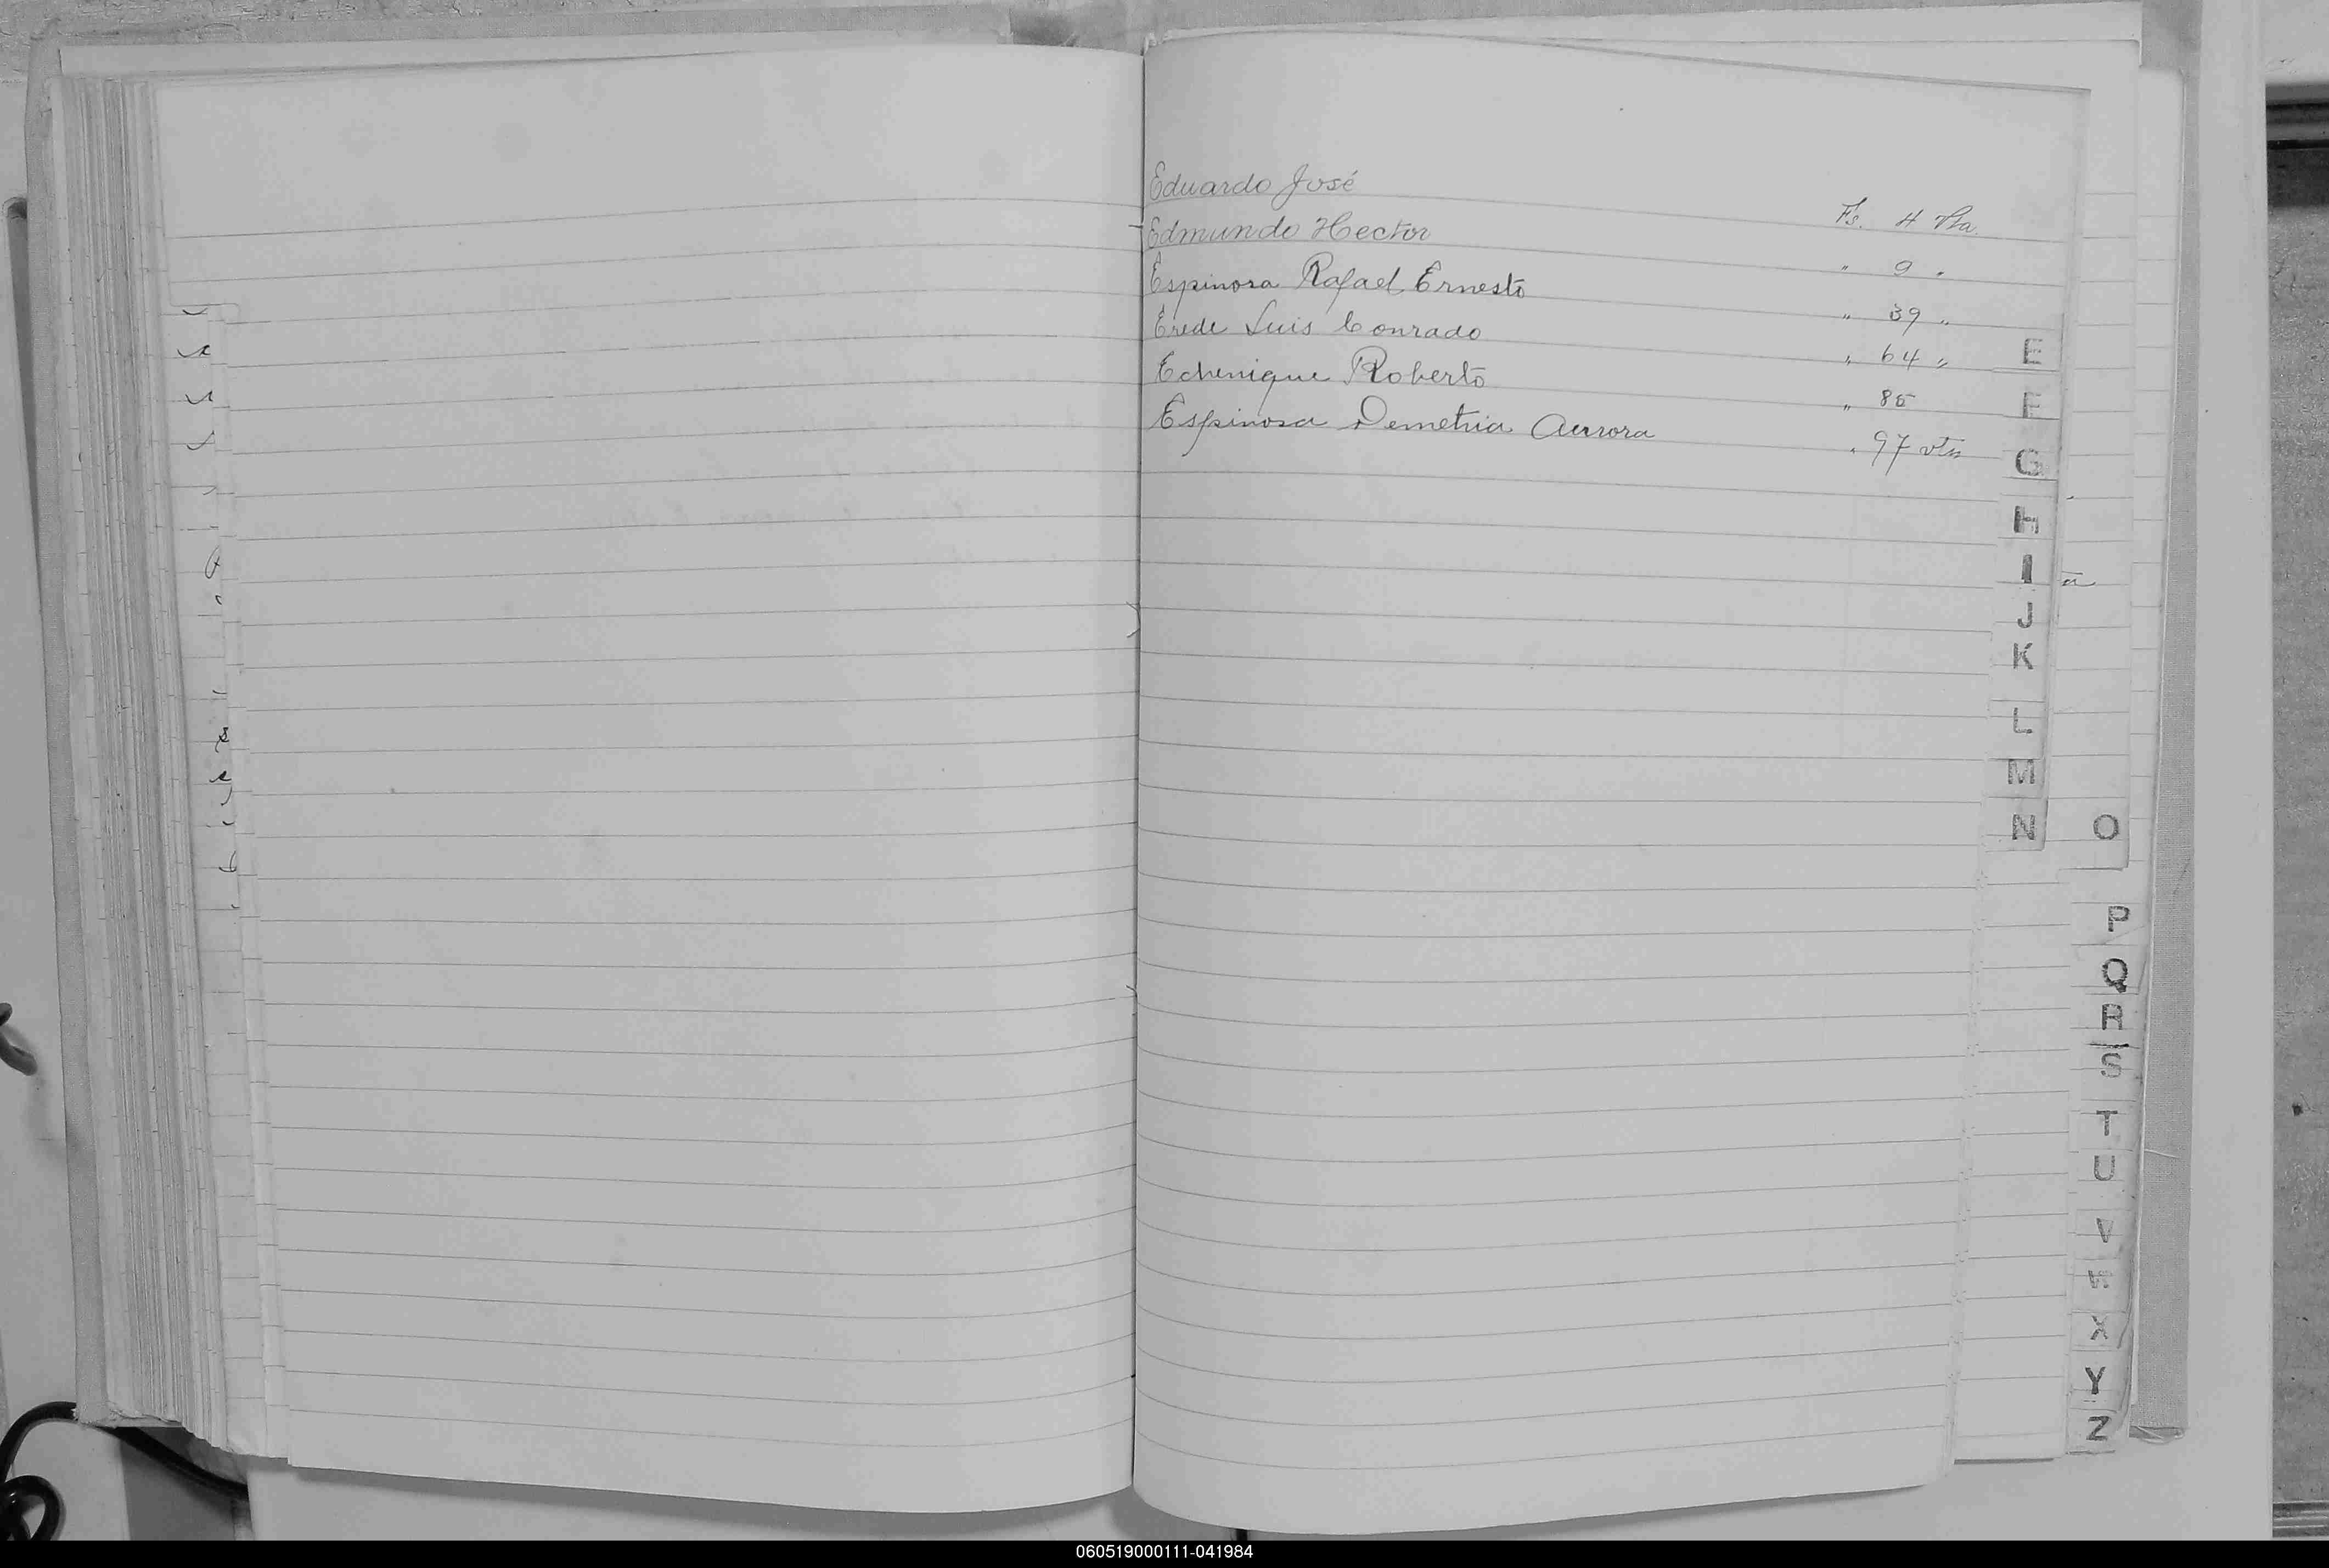 Eduardo José Fs. 4 Vta.
Edmundo Hector " 9 "
Espinosa Rafael Ernesto " 39 "
Erede Luis Conrado " 64 "
Echenique Roberto " 85
Espinosa Demetria Aurora " 97 vta
E
F
G
H
I
J
K
L
M
N
O
P
Q
R
S
T
U
V
W
X
Y
Z
060519000111-041984